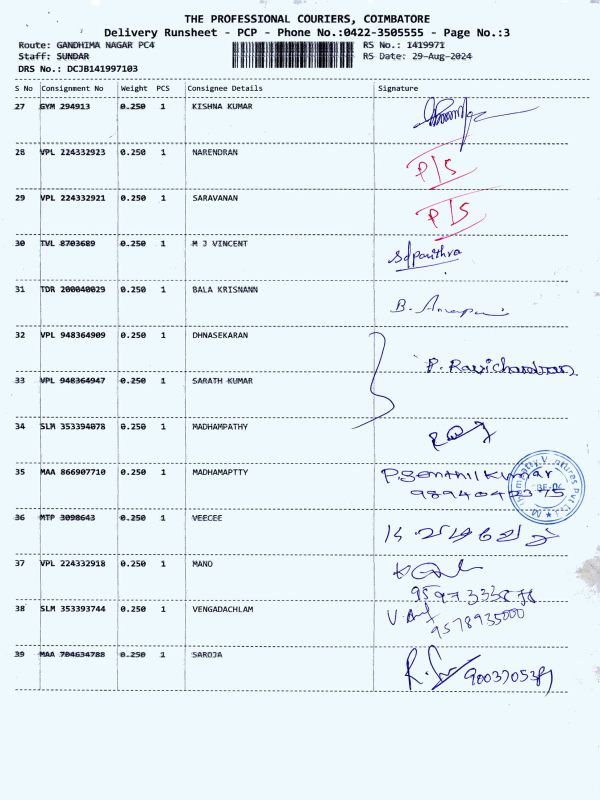 THE PROFESSIONAL COURIERS, COIMBATORE
Delivery Runsheet - PCP - Phone No.:0422-3505555 - Page No.:3
Route: GANDHIMA NAGAR PC4 RS No.: 1419971
Staff: SUNDAR RS Date: 29-Aug-2024
DRS No.: DCJB141997103
S No Consignment No Weight PCS Consignee Details Signature
27 GYM 294913 0.250 1 KISHNA KUMAR
28 VPL 224332923 0.250 1 NARENDRAN P/S
29 VPL 224332921 0.250 1 SARAVANAN P/S
30 TVL 8703689 0.250 1 M J VINCENT
31 TDR 200040029 0.250 1 BALA KRISNANN B.
32 VPL 948364909 0.250 1 DHNASEKARAN P. Ravichandran
33 VPL 948364947 0.250 1 SARATH KUMAR
34 SLM 353394078 0.250 1 MADHAMPATHY
35 MAA 866907710 0.250 1 MADHAMAPTTY P Senthil Kumar
9894042375
36 MTP 3098643 0.250 1 VEECEE
37 VPL 224332918 0.250 1 MANO
38 SLM 353393744 0.250 1 VENGADACHLAM V.
9578935000
39 MAA 704634788 0.250 1 SAROJA R.